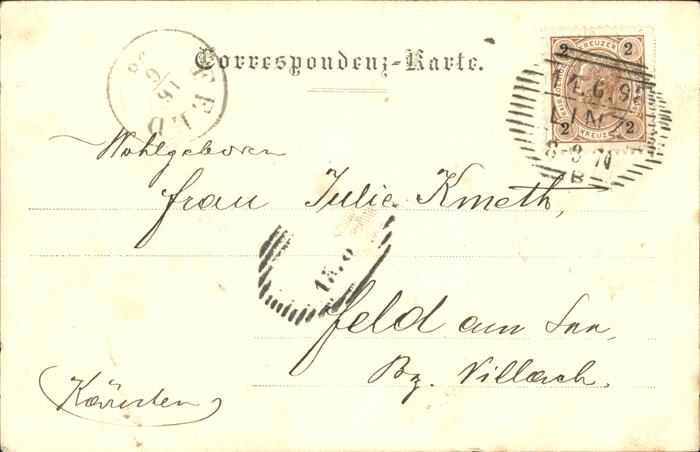 Correspondenz-Karte.
2 KREUZER 2
2 KREUZER 2
LINZ
FELD
16
6
98
Wohlgeboren
Frau Julie Kmeth,
15.6
Feld am See,
Bz. Villach.
(Kärnten)